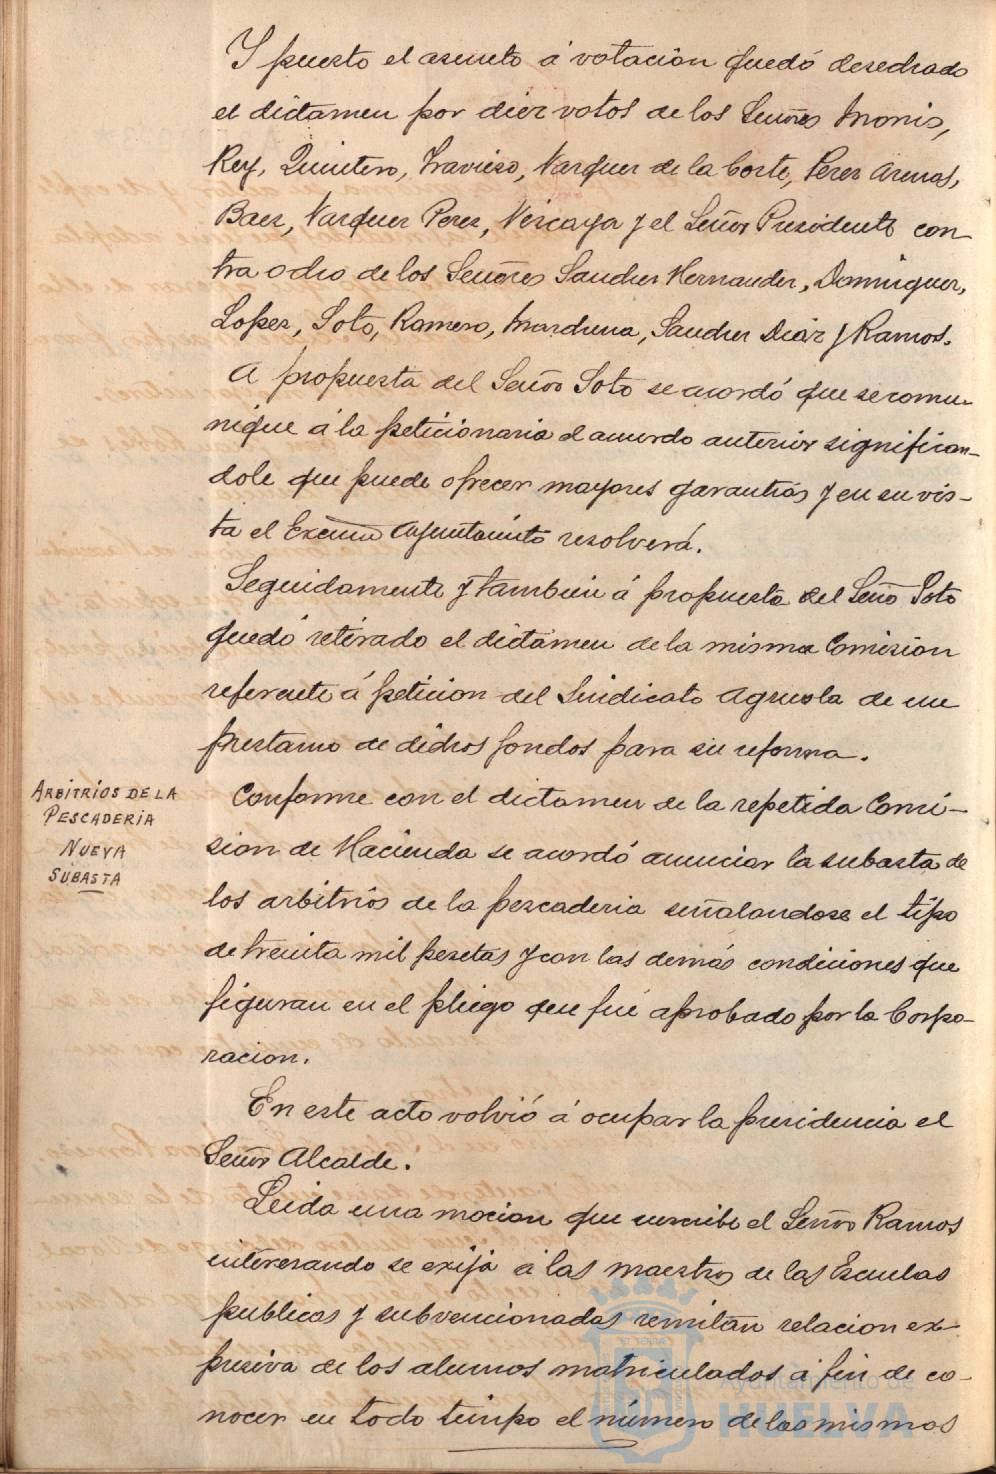 Y puesto el asunto á votación quedó desechado
el dictamen por diez votos de los Señores Monis,
Rey, Quintero, Travieso, Vazquez de la Corte, Perez Arenas,
Baez, Vazquez Perez, Vizcaya y el Señor Presidente con-
tra ocho de los Señores Sanchez Hernandez, Dominguez,
Lopez, Soto, Romero, Marchena, Sanchez Diaz y Ramos.
A propuesta del Señor Soto se acordó que se comu-
nique á la peticionaria el acuerdo anterior significan-
dole que puede ofrecer mayores garantias y en su vis-
ta el Excmo Ayuntamiento resolverá.
Seguidamente y tambien á propuesta del Señor Soto
quedó retirado el dictamen de la misma Comision
referente á peticion del Sindicato Agricola de un
prestamo de dichos fondos para su reforma.
ARBITRIOS DE LA
PESCADERIA
NUEVA
SUBASTA
Conforme con el dictamen de la repetida Comi-
sion de Hacienda se acordó anunciar la subasta de
los arbitrios de la pescaderia señalandose el tipo
de treinta mil pesetas y con las demás condiciones que
figuran en el pliego que fué aprobado por la Corpo-
racion.
En este acto volvió á ocupar la presidencia el
Señor Alcalde.
Leida una mocion que suscribe el Señor Ramos
interesando se exija á las maestros de las Escuelas
publicas y subvencionadas remitan relacion ex-
presiva de los alumnos matriculados á fin de co-
nocer en todo tiempo el número de los mismos
Ayuntamiento de
HUELVA